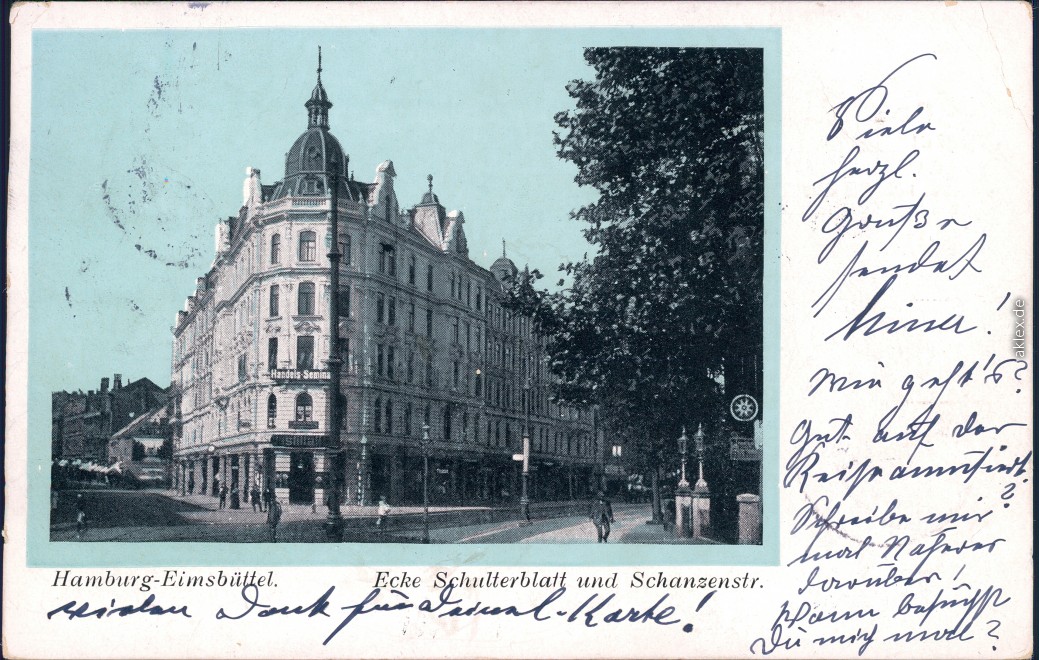 Handels-Semina
Viele
herzl.
Grüße
sendet
Minna!
Wie geht's?
Gut auf der
Reise amüsiert?
Schreibe mir
mal Näheres
darüber!
Wann besuchst
Du mich mal?
Hamburg-Eimsbüttel. Ecke Schulterblatt und Schanzenstr.
vielen Dank für Deine Karte!
aklex.de